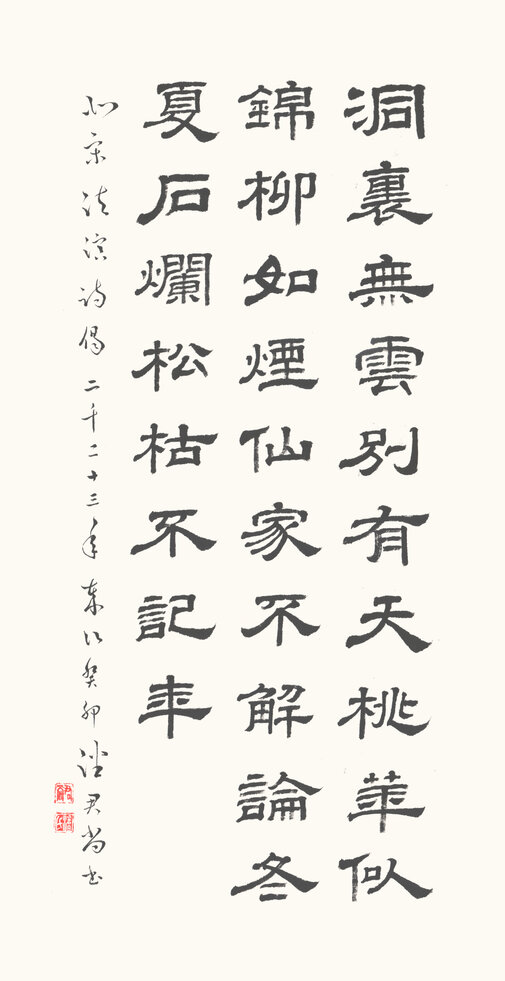 洞裏無雲別有天桃華似
錦柳如煙仙家不解論冬
夏石爛松枯不記年
北宋法演詩偈二千二十三年歲次癸卯 君尚書